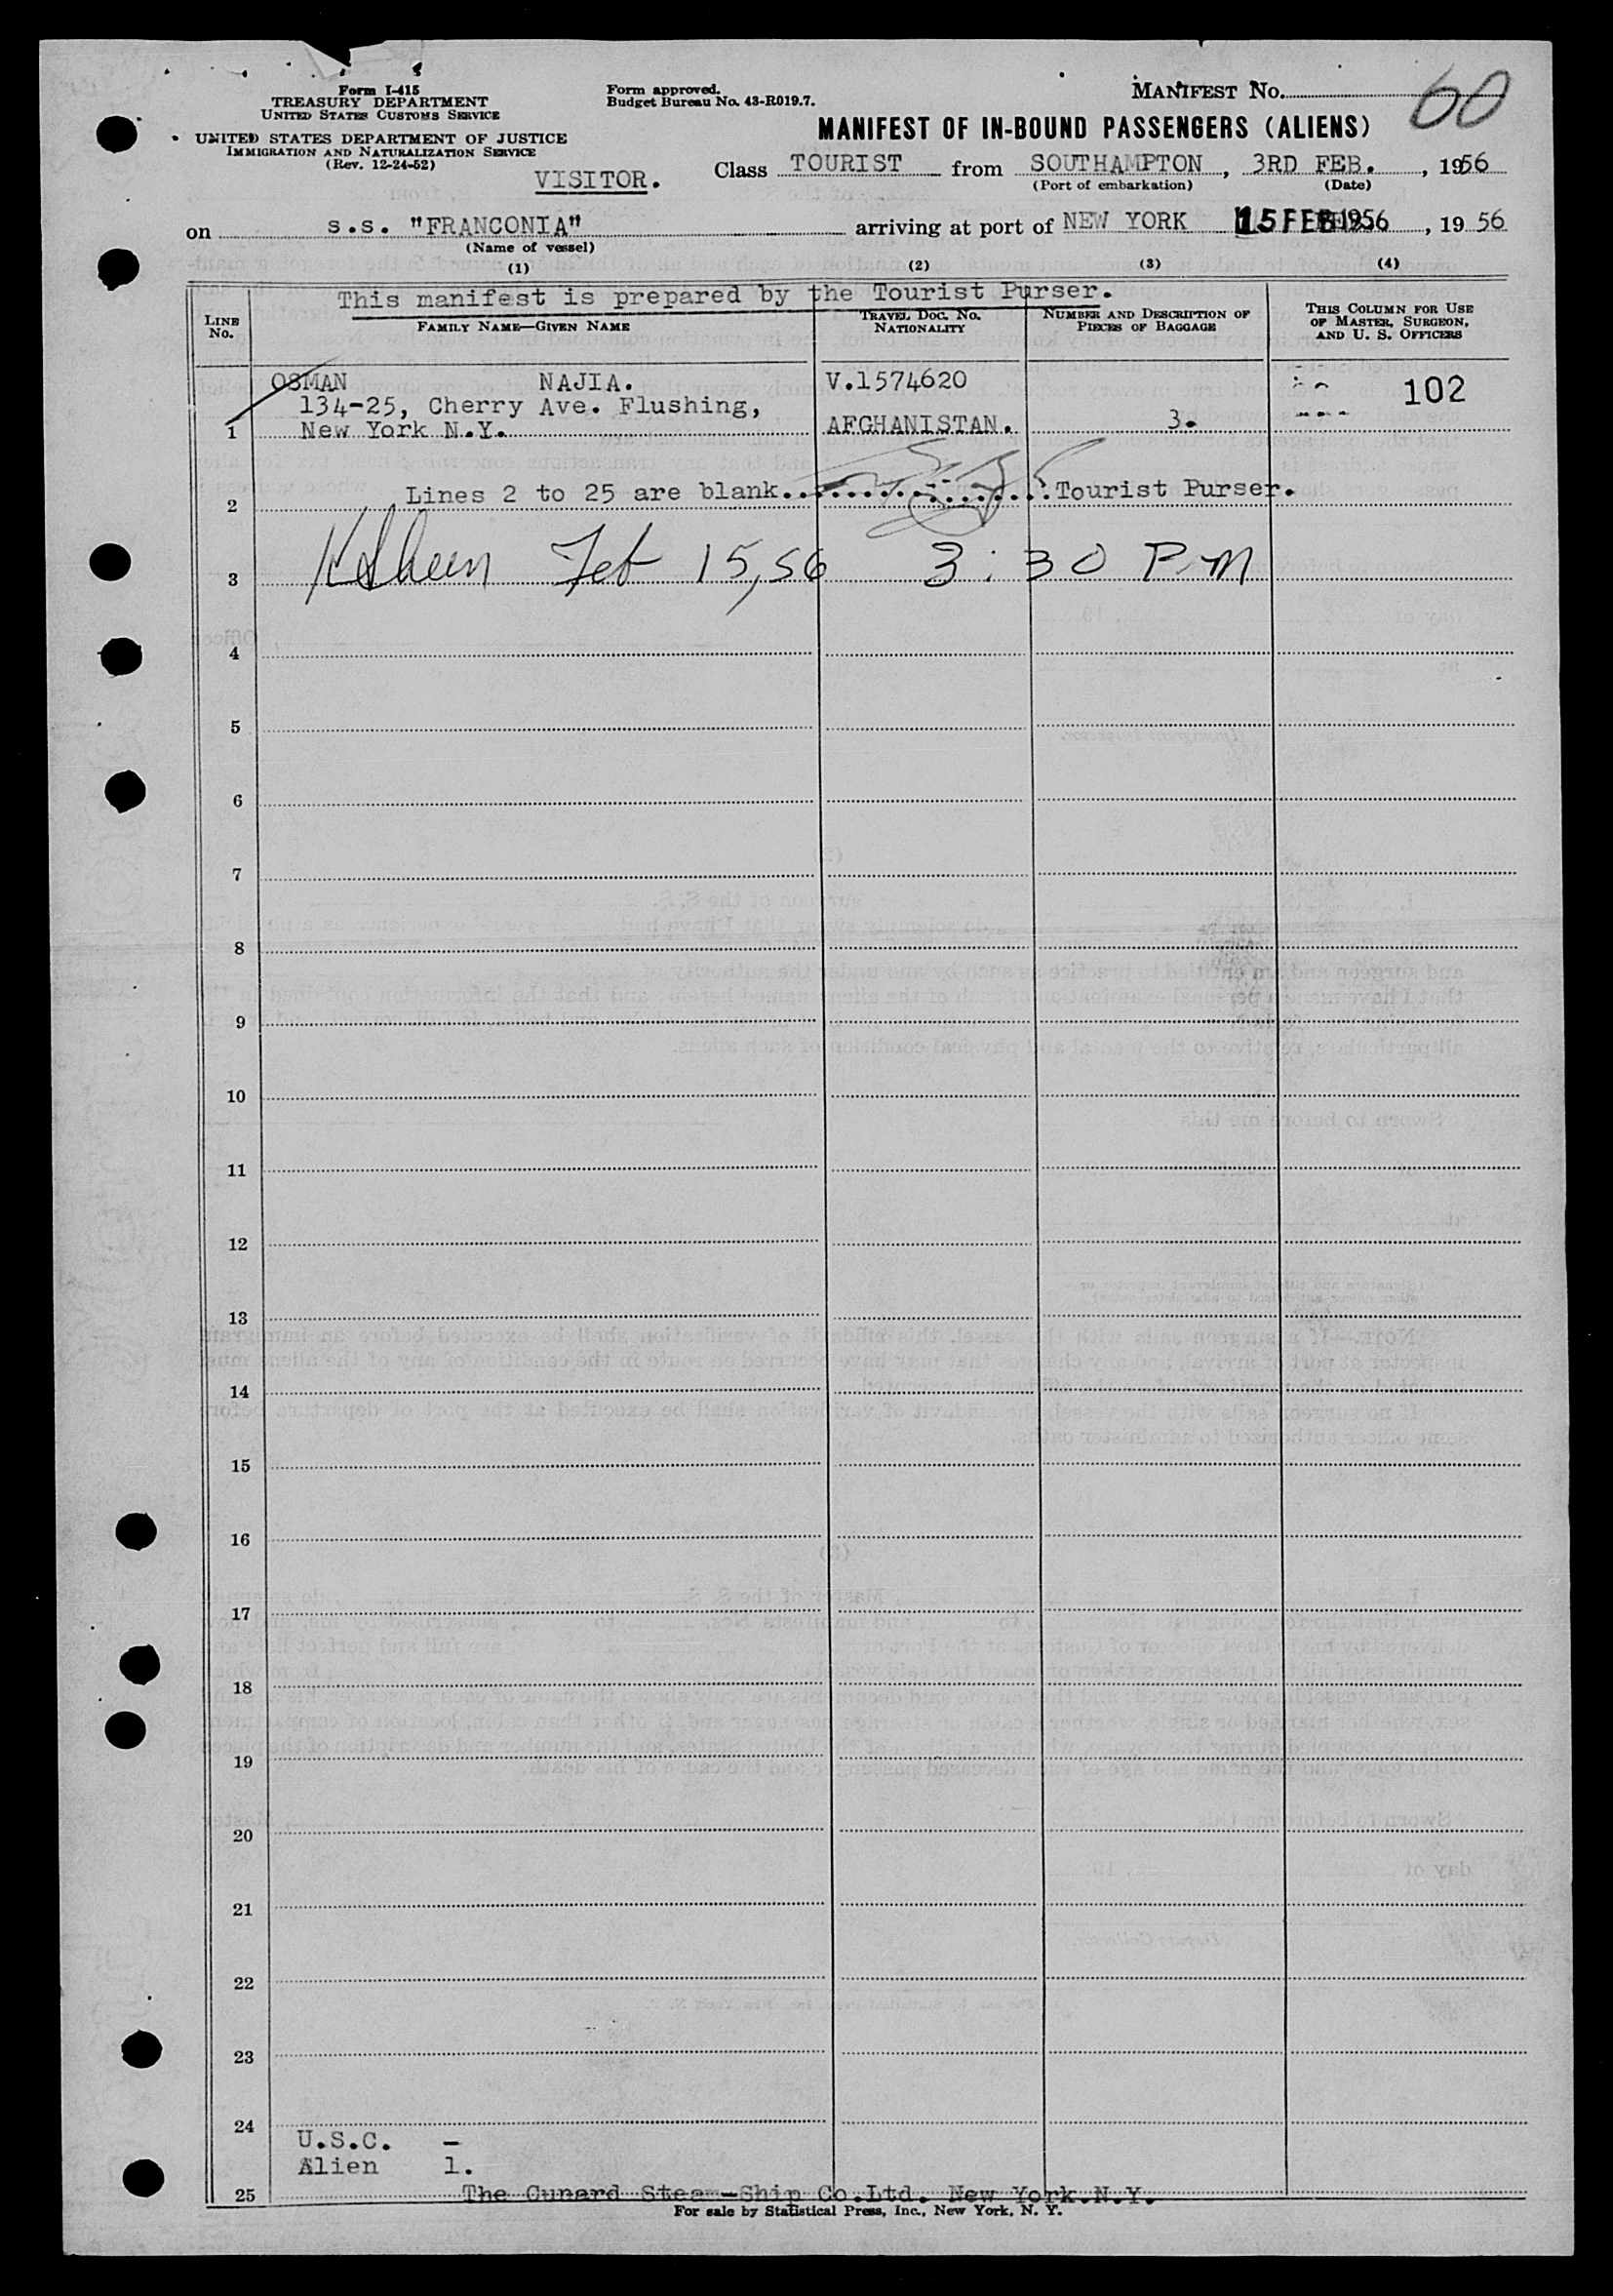 Form I-415
TREASURY DEPARTMENT
UNITED STATES CUSTOMS SERVICE
UNITED STATES DEPARTMENT OF JUSTICE
IMMIGRATION AND NATURALIZATION SERVICE
(Rev. 12-24-52)
Form approved.
Budget Bureau No. 43-R019.7.
MANIFEST No. 60
MANIFEST OF IN-BOUND PASSENGERS (ALIENS)
VISITOR.
Class TOURIST from SOUTHAMPTON, 3RD FEB., 1956
(Port of embarkation) (Date)
on s.s. "FRANCONIA" arriving at port of NEW YORK 15 FEB 1956, 19 56
(Name of vessel)
(1) (2) (3) (4)
This manifest is prepared by the Tourist Purser.
LINE No. FAMILY NAME—GIVEN NAME TRAVEL DOC. NO. NATIONALITY NUMBER AND DESCRIPTION OF PIECES OF BAGGAGE THIS COLUMN FOR USE OF MASTER, SURGEON, AND U. S. OFFICERS
OSMAN NAJIA. V.1574620 102
134-25, Cherry Ave. Flushing,
1 New York N.Y. AFGHANISTAN. 3.
2 Lines 2 to 25 are blank........................Tourist Purser.
3 Feb 15,56 3:30 PM
4
5
6
7
8
9
10
11
12
13
14
15
16
17
18
19
20
21
22
23
24
U.S.C. –
Alien 1.
25 The Cunard Steam-Ship Co.Ltd. New York.N.Y.
For sale by Statistical Press, Inc., New York, N. Y.